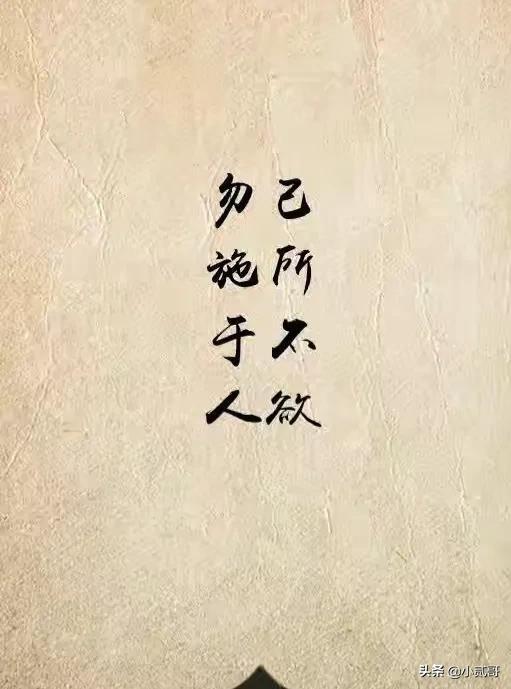 己所不欲
勿施于人
头条 @小贰哥